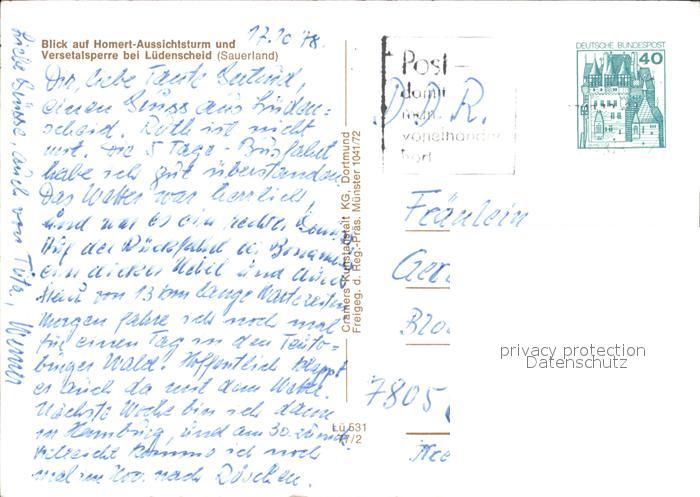 17.10.78.
Blick auf Homert-Aussichtsturm und
Versetalsperre bei Lüdenscheid (Sauerland)
Dir, liebe Tante Gertrud,
einen Gruss aus Lüden=
scheid. Ruth ist nicht
mit. Die 5 Tage-Busfahrt
habe ich gut überstanden.
Das Wetter war herrlich,
und war es ein rechter
Auf der Rückfahrt in
ein dicker Nebel und
von 13 km lange Wartezeiten
Morgen fahre ich noch mal
für einen Tag in den Teuto-
burger Wald. Hoffentlich klappt
es auch da mit dem Wetter.
Nächste Woche bin ich dann
in Hamburg, und am 30. zurück
vielleicht komme ich noch
mal im Nov. nach
Liebe Grüsse, auch von Tuta, Werner
Cramers Kunstanstalt KG, Dortmund
Freigeg. d. Reg.-Präs. Münster 1041/72
Lü 531
/2
Post-
damit
man
voneinander
hört
DEUTSCHE BUNDESPOST
40
D.D.R.
Fräulein
7805
privacy protection
Datenschutz